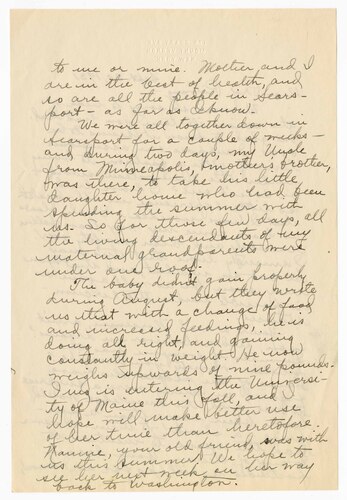 to me or mine. Mother and I
are in the best of health, and
so are all the people in Sears-
port - as far as I know.
We were all together down in
Searsport for a couple of weeks -
and during two days, my Uncle
from Minneapolis, mother's brother,
was there, to take his little
daughter home who had been
spending the summer with
us. So for those few days, all
the living descendants of my
maternal grandparents were
under one roof.
The baby didn't gain properly
during August, but they wrote
us that with a change of food
and increased feedings, he is
doing all right, and gaining
constantly in weight. He now
weighs upwards of nine pounds.
is entering the Universi-
ty of Maine this fall, and I
hope will make better use
of her time than heretofore.
your old friend, was with
us this summer. We hope to
see her next week on her way
back to Washington.